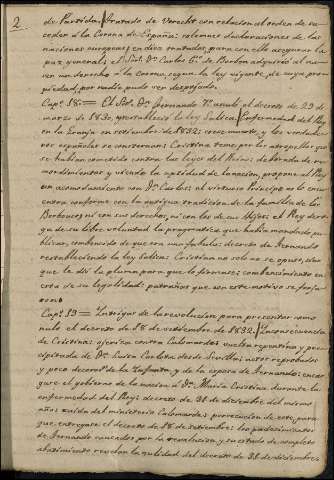 2
de Partidas, tratado de Utrecht con relacion al orden de su-
ceder á la Corona de España: solemnes declaraciones de las
naciones europeas en diez tratados para con ello asegurar la
paz general; el Sor. Dn. Carlos 6º de Borbon adquirió al na-
cer un derecho á la Corona, segun la ley vigente, de cuya pro-
piedad por nadie pudo ser despojado.
Capº 18: = El Sor. Dn. Fernando 7º anuló el decreto de 29 de
marzo de 1830, y restableció la ley Salica: Enfermedad del Rey
en la Granja en setiembre de 1832; cree morir, y los verdade-
ros españoles se consternan: Cristina teme, por los atropellos que
se habian cometido contra las leyes del Reino: devorada de re-
mordimientos y viendo la aptitud de la nacion, propone al Rey
un acomodamiento con Dn. Carlos: el virtuoso Principe no lo encu-
entra conforme con la antigua tradicion de la familia de los
Borbones, ni con sus derechos, ni con los de sus hijos: el Rey dero-
ga de su libre voluntad la pragmatica que habia mandado pu-
blicar, convencido de que era una fabula: decreto de Fernando
restableciendo la ley Salica: Cristina no solo no se opuso, sino
que le dió la pluma para que lo firmase; convencimiento en
esta de su legalidad: patrañas que con este motivo se forja-
ron.
Capº 19 = Intrigas de la revolucion para presentar como
nulo el decreto de 18 de setiembre de 1832. Inconsecuencia
de Cristina: ejercen contra Calomarde: vuelta repentina y pre-
cipitada de Dª Luisa Carlota desde Sevilla: actos reprobados
y poco decorosos de la Infanta, y de la esposa de Fernando: encar-
gase el gobierno de la nacion á Dª Maria Cristina durante la
enfermedad del Rey: decreto de 31 de diciembre del mismo
año: caida del ministerio Calomarde: persecucion de este, para
que entregase el decreto de 18 de setiembre: los padecimientos
de Fernando causados por la revolucion, y su estado de completo
abatimiento revelan la nulidad del decreto de 31 de diciembre.